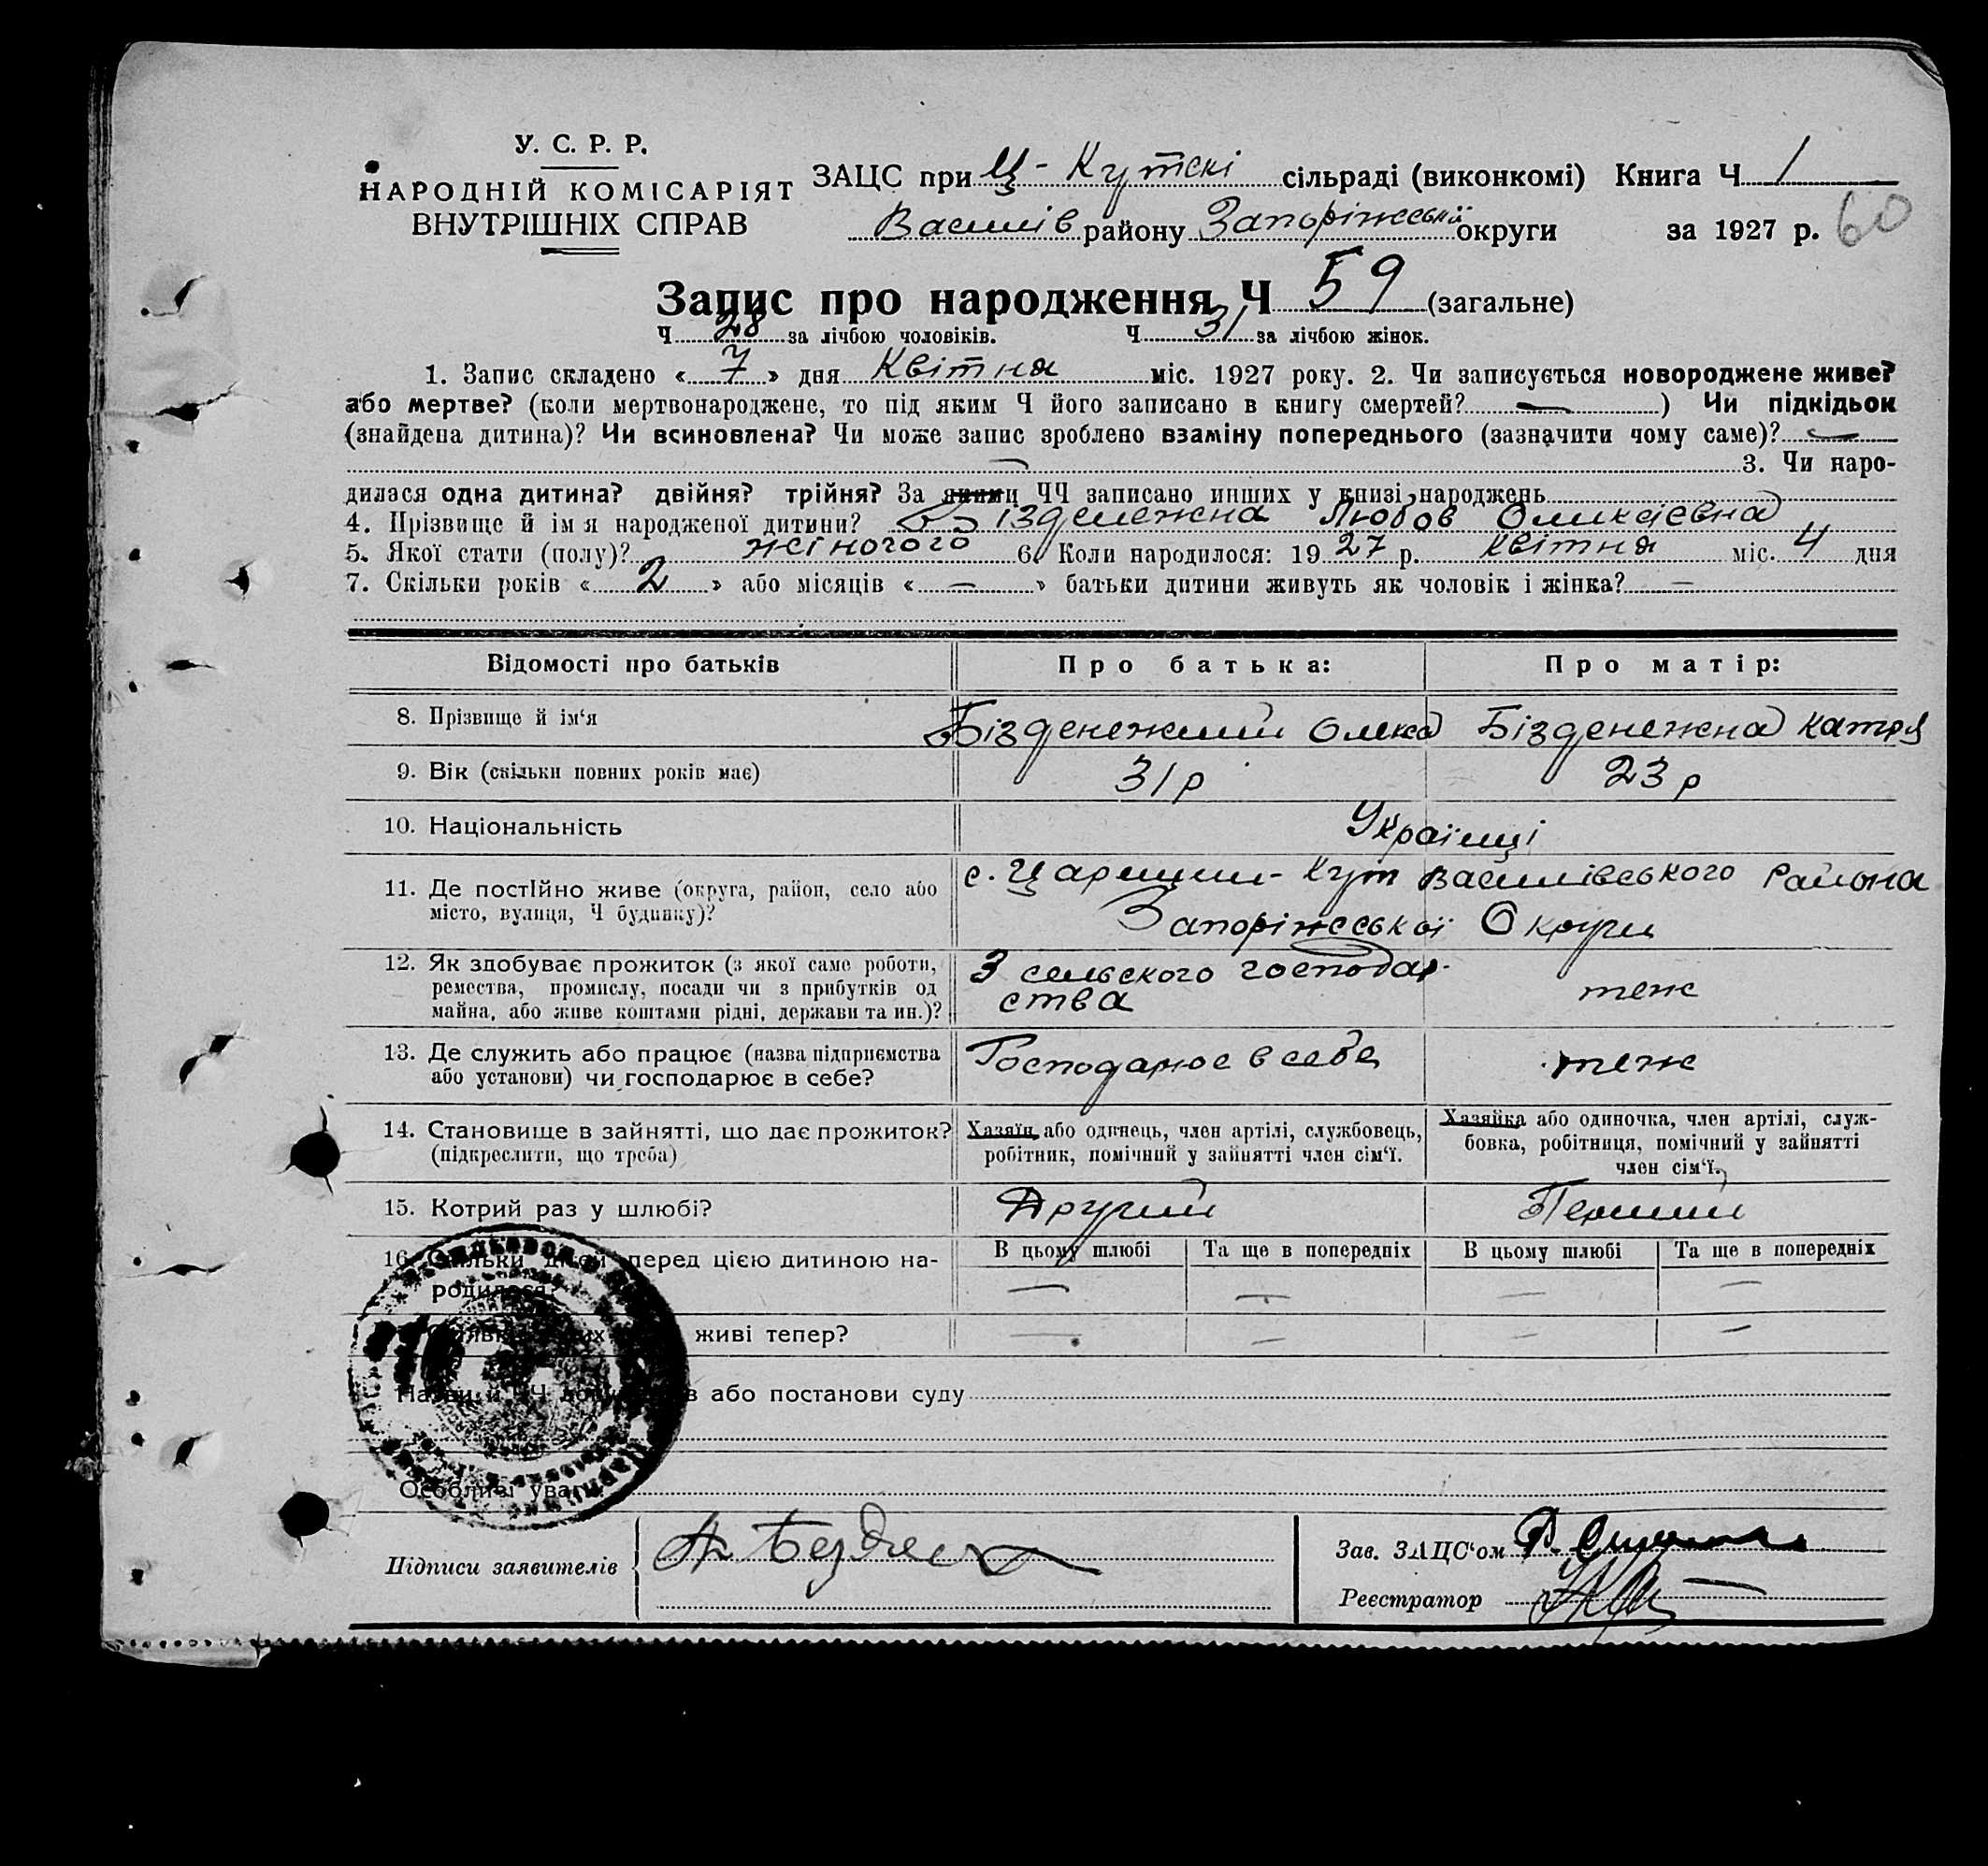 У. С. Р. Р.
НАРОДНІЙ КОМІСАРІЯТ
ВНУТРІШНІХ СПРАВ
ЗАЦС при Ц-Кутскі сільраді (виконкомі) Книга Ч 1
Василів району Запоріжської округи за 1927 р. 60
Запис про народження Ч 59 (загальне)
Ч 28 за лічбою чоловіків. Ч 31 за лічбою жінок.
1. Запис складено « 7 » дня Квітня міс. 1927 року. 2. Чи записується новороджене живе?
або мертве? (коли мертвонароджене, то під яким Ч його записано в книгу смертей? — ) Чи підкідьок
(знайдена дитина)? Чи всиновлена? Чи може запис зроблено взаміну попереднього (зазначити чому саме)? —
3. Чи наро-
дилася одна дитина? двійня? трійня? За якими ЧЧ записано инших у книзі народжень
4. Прізвище й ім я народженої дитини? Бізденежна Любов Оликсієвна
5. Якої стати (полу)? жіночого 6. Коли народилося: 19 27 р. квітня міс. 4 дня
7. Скільки років « 2 » або місяців « — » батьки дитини живуть як чоловік і жінка? —
Відомості про батьків Про батька: Про матір:
8. Прізвище й ім‘я Бізденежний Олекса Бізденежна Катря
9. Вік (скільки повних років має) 31 р 23 р
10. Національність Українці
11. Де постійно живе (округа, район, село або
місто, вулиця, Ч будинку)?
с. Царицин-Кут Василівського Района
Запоріжської Округи
12. Як здобуває прожиток (з якої саме роботи,
ремества, промислу, посади чи з прибутків од
майна, або живе коштами рідні, держави та ин.)?
З сельского господар-
ства
теж
13. Де служить або працює (назва підприємства
або установи) чи господарює в себе?
Господарює в себе теж
14. Становище в зайнятті, що дає прожиток?
(підкреслити, що треба)
Хазяїн або одинець, член артілі, службовець,
робітник, помічний у зайнятті член сім‘ї.
Хазяйка або одиночка, член артілі, служ-
бовка, робітниця, помічний у зайнятті
член сім‘ї.
15. Котрий раз у шлюбі? Другий Перший
16. Скільки дітей перед цією дитиною на-
родилося?
В цьому шлюбі Та ще в попередніх В цьому шлюбі Та ще в попередніх
— — — —
живі тепер? — — — —
або постанови суду
Особливі уваги:
Підписи заявителів
Зав. ЗАЦС‘ом
Реєстратор